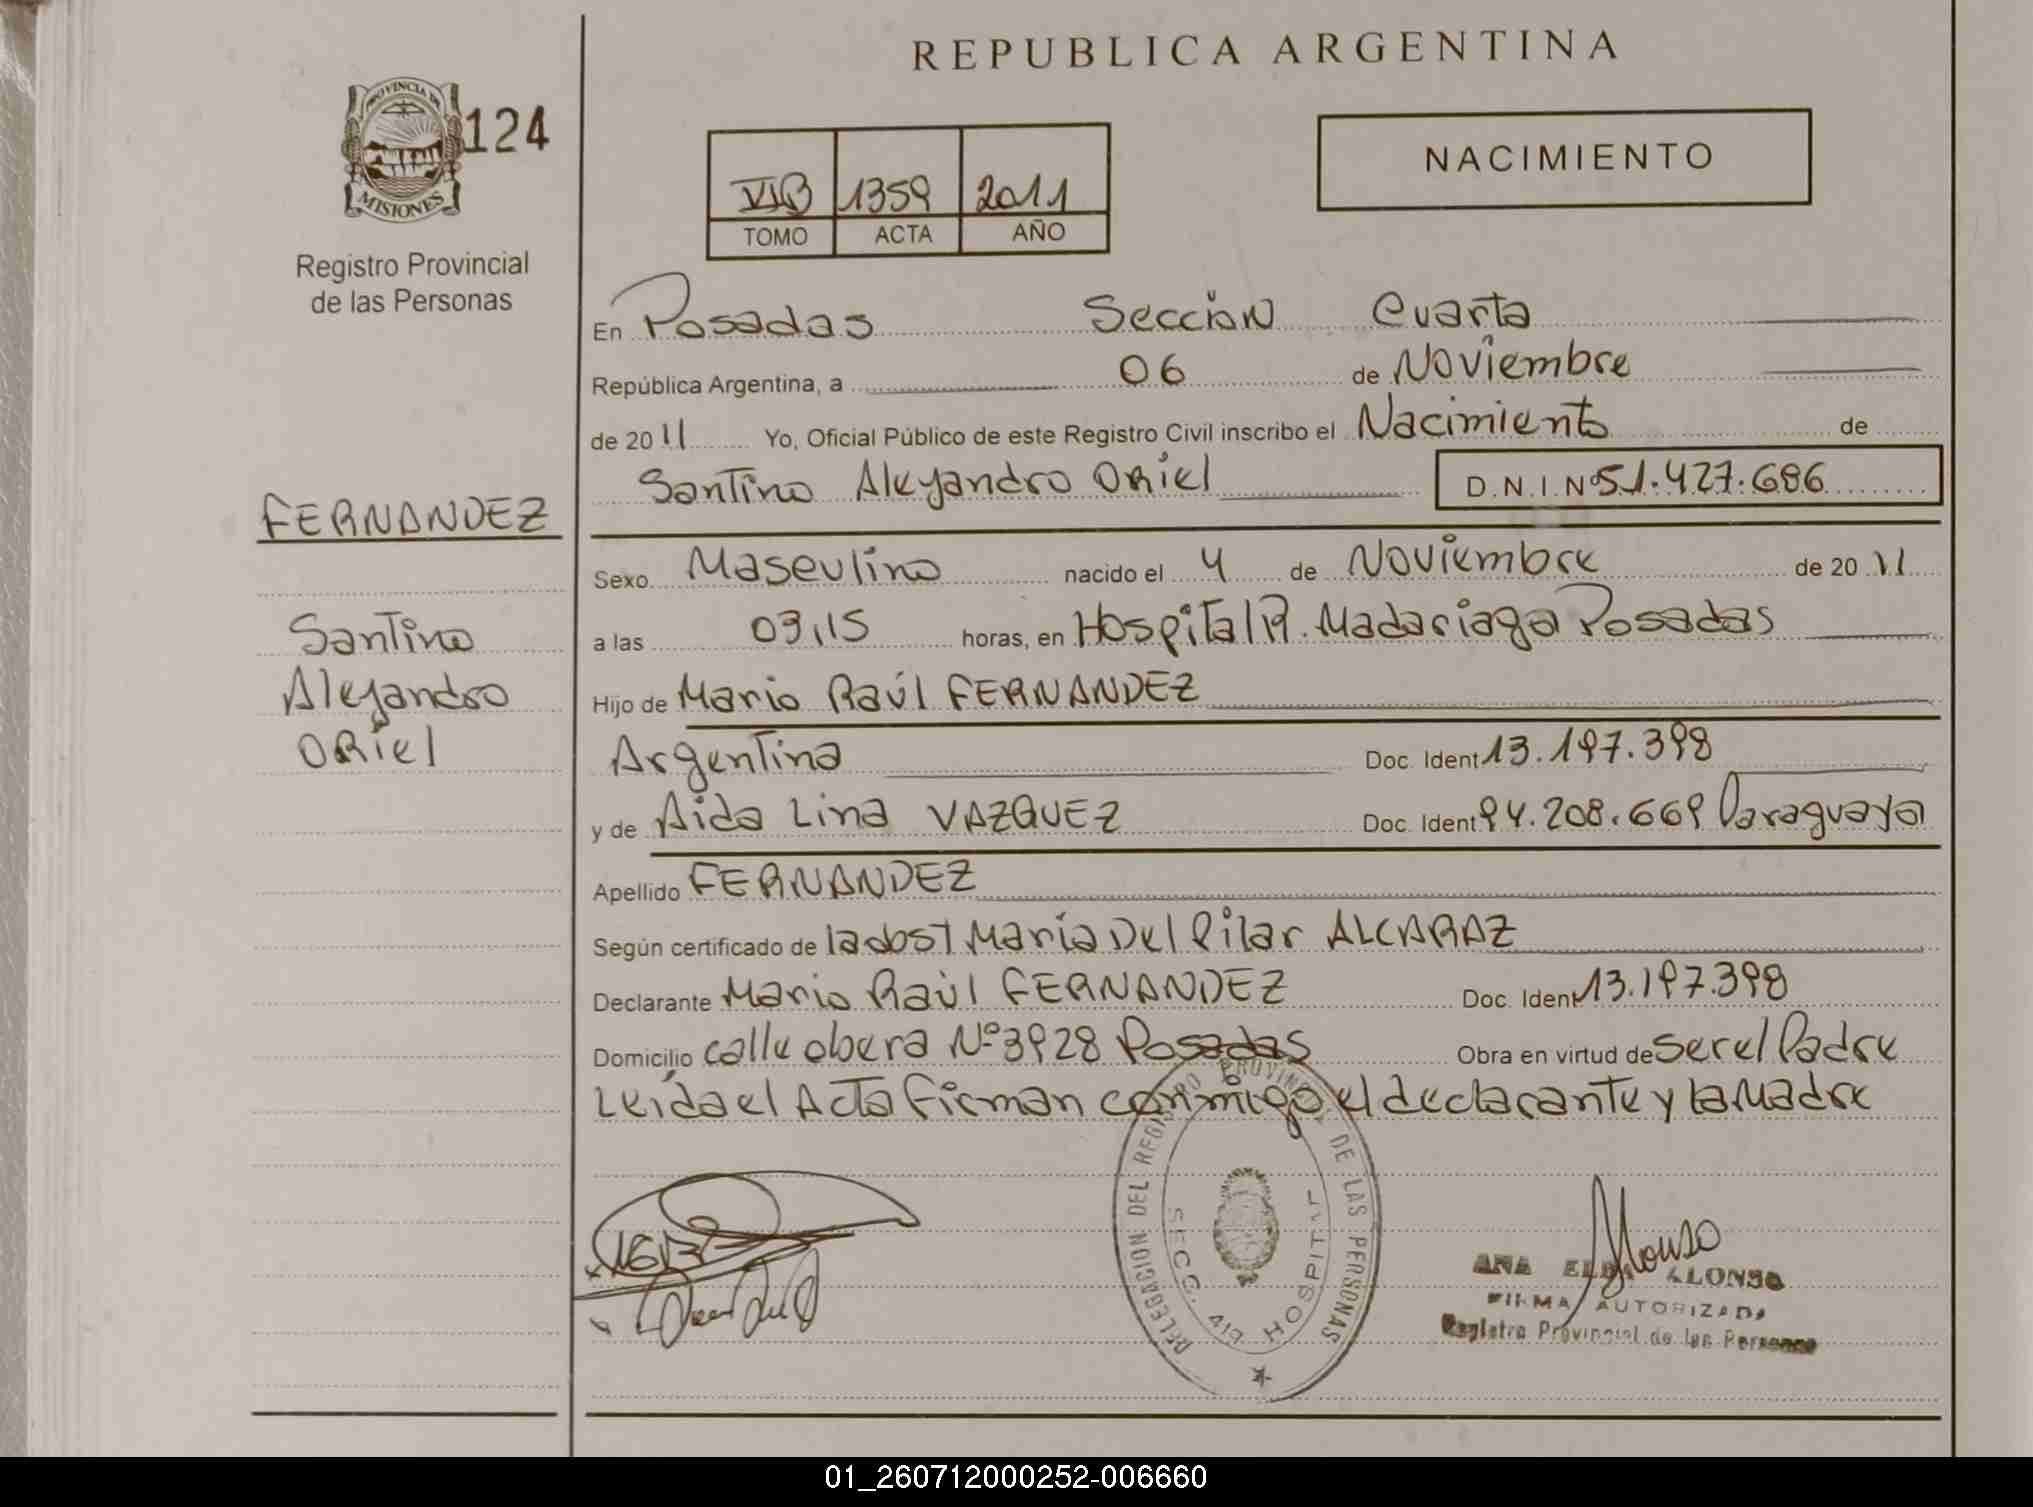 REPUBLICA ARGENTINA
PROVINCIA DE
MISIONES
124
Registro Provincial
de las Personas
VIB 1359 2011
TOMO ACTA AÑO
NACIMIENTO
En Posadas Sección Cuarta
República Argentina, a 06 de Noviembre
de 2011 Yo, Oficial Público de este Registro Civil inscribo el Nacimiento de
Santino Alejandro Oriel D.N.I. Nº 51.427.686
FERNANDEZ
Santino
Alejandro
Oriel
Sexo Masculino nacido el 4 de Noviembre de 2011
a las 03,15 horas, en Hospital R. Madariaga Posadas
Hijo de Mario Raúl FERNANDEZ
Argentina Doc. Ident 13.197.398
y de Aida Lina VAZQUEZ Doc. Ident 94.208.669 Paraguaya
Apellido FERNANDEZ
Según certificado de la obst María Del Pilar ALCARAZ
Declarante Mario Raúl FERNANDEZ Doc. Ident 13.197.398
Domicilio calle obera Nº 3928 Posadas Obra en virtud de ser el Padre
Leída el Acta firman conmigo el declarante y la Madre
DELEGACION DEL REGISTRO PROVINCIAL DE LAS PERSONAS
SECC. 4ta HOSPITAL
Alonso
ANA ELBA ALONSO
FIRMA AUTORIZADA
Registro Provincial de las Personas
01_260712000252-006660